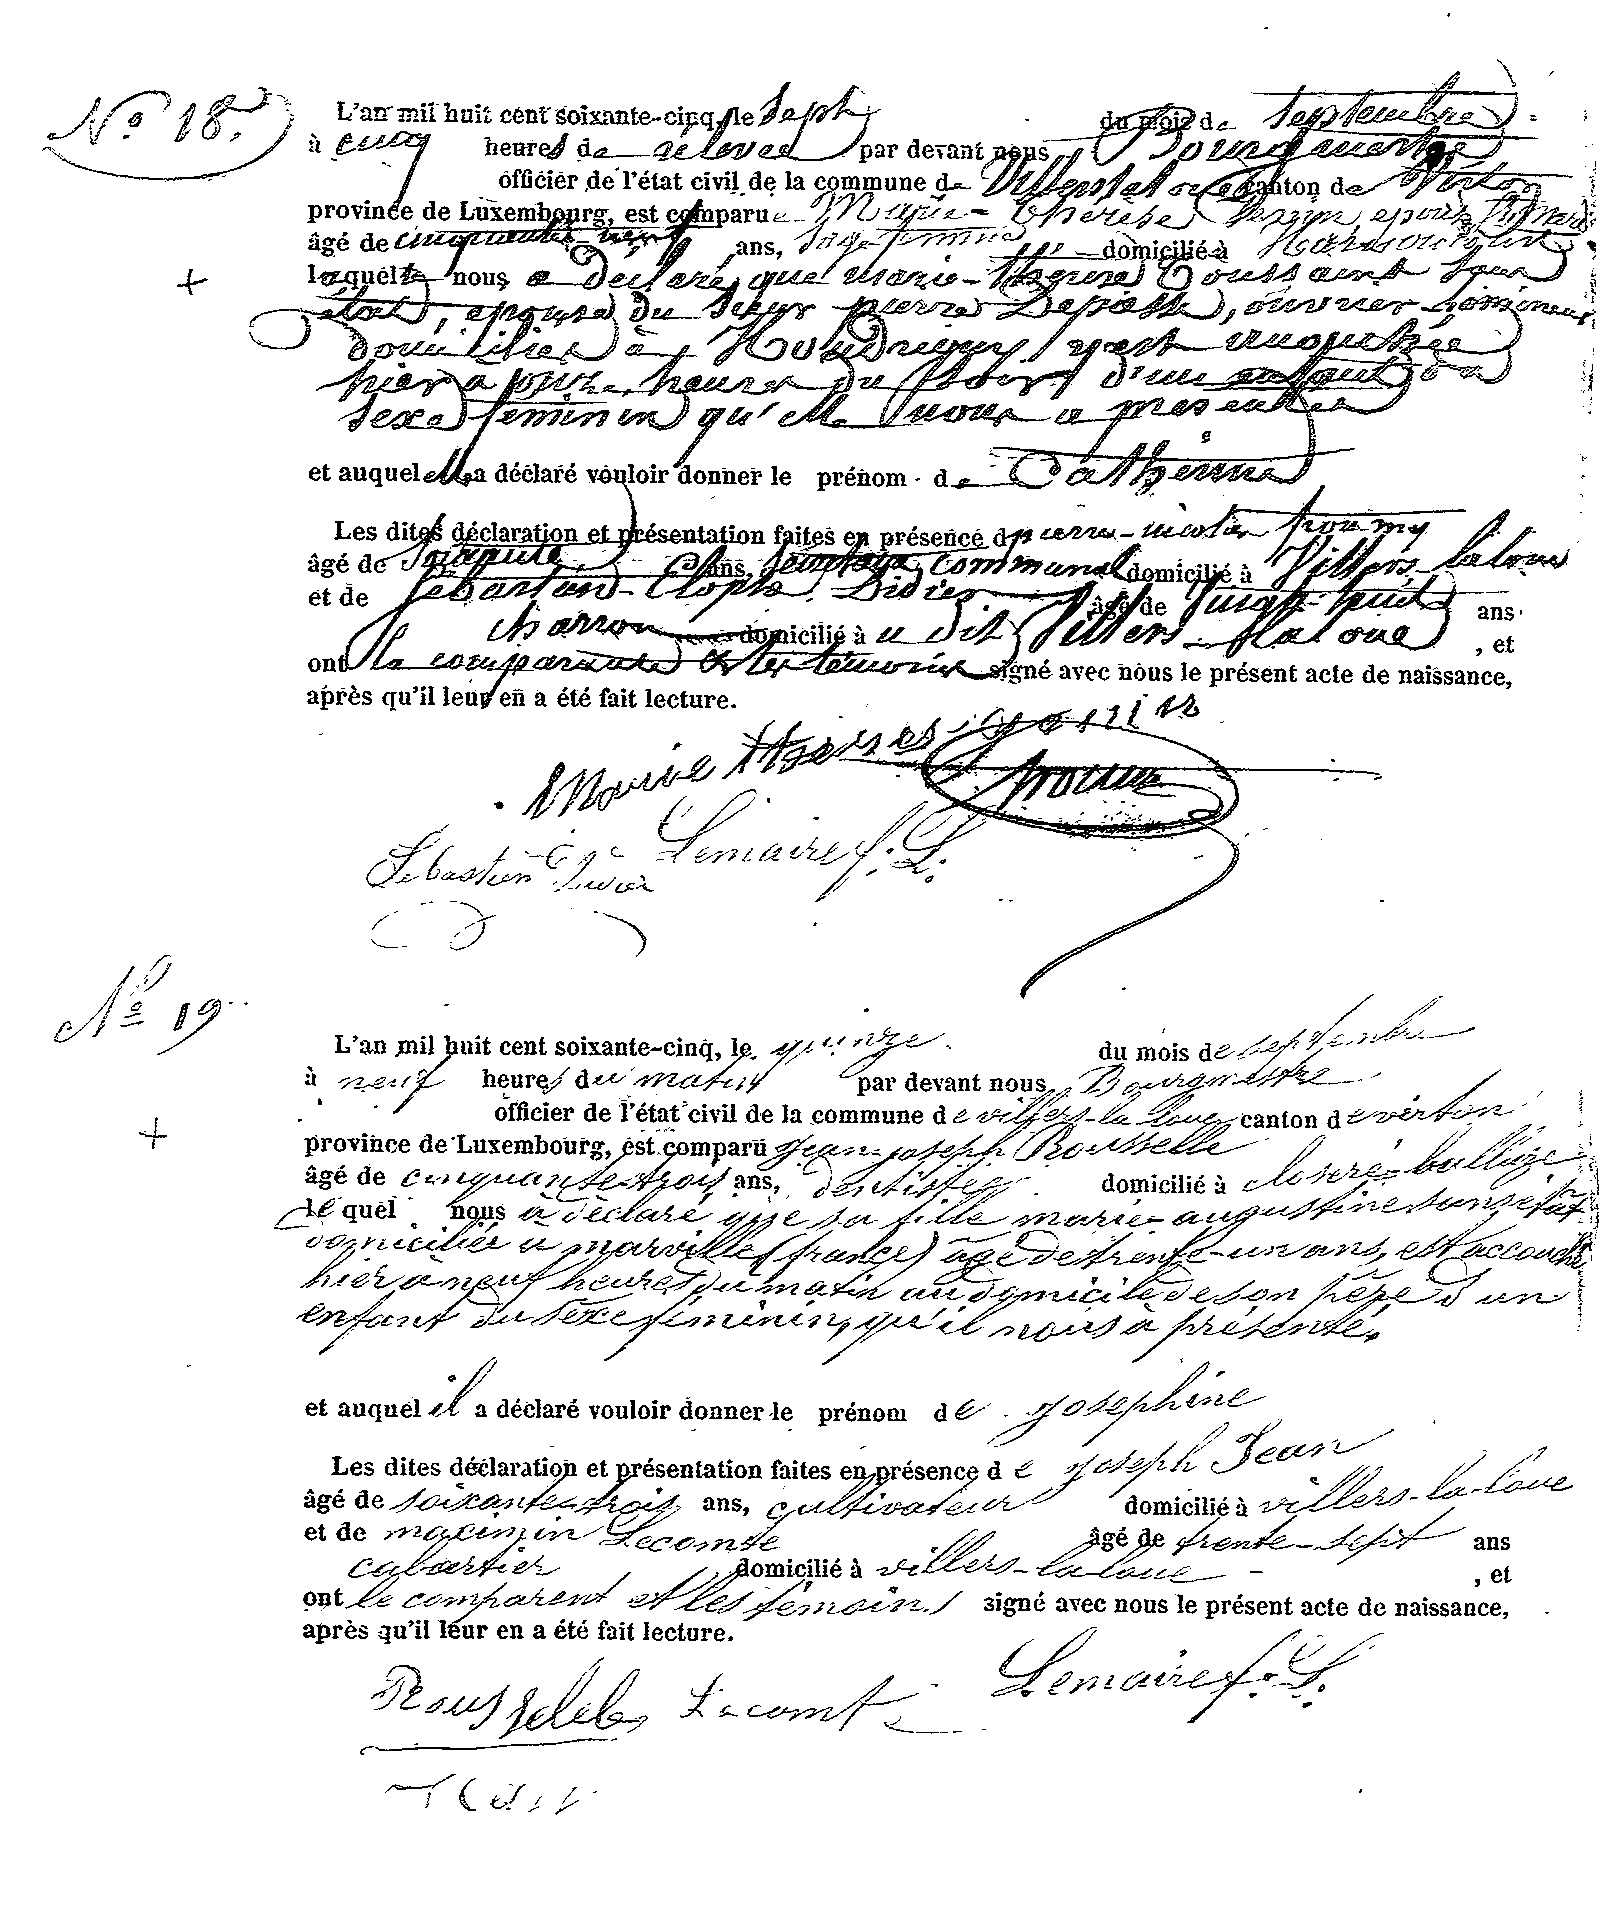 No 18.
L'an mil huit cent soixante-cinq, le sept du mois de Septembre
à cinq heures de relevée par devant nous Bourgmestre
officier de l'état civil de la commune de Villers-la-loue canton de Virton
province de Luxembourg, est comparue Marie-Thérèse épouse
âgé de cinquante neuf ans, Sage femme domicilié à
laquelle nous a déclaré que marie-thérese Toussaint Sans
état, épouse du Sieur pierre ouvrier
domiciliés à Houdrigny, est accouchée
hier à heures du d'un enfant du
sexe féminin qu'elle nous a présenté
et auquel elle a déclaré vouloir donner le prénom de Cathérine
Les dites déclaration et présentation faites en présence de pierre-nicolas
âgé de soixante ans, communal domicilié à Villers-la loue
et de Sébastien Didier âgé de vingt-huit ans
charron domicilié à u dit Villers-la loue, et
ont la comparante et les témoins signé avec nous le présent acte de naissance,
après qu'il leur en a été fait lecture.
Marie therese
Sebastien Didier Lemaire f. L.
No 19
L'an mil huit cent soixante-cinq, le quinze du mois de septembre
à neuf heures du matin par devant nous Bourgmestre
officier de l'état civil de la commune de villers-la-loue canton de virton
province de Luxembourg, est comparu jean-joseph Rousselle
âgé de cinquante-trois ans, dentiste domicilié à
lequel nous à déclaré que sa fille marie-augustine sans état
domiciliée à marville (france) âgé de trente-un ans, est accouchée
hier à neuf heures du matin au domicile de son père d'un
enfant du sexe féminin, qu'il nous à présenté,
et auquel il a déclaré vouloir donner le prénom de joséphine
Les dites déclaration et présentation faites en présence de joseph Jean
âgé de soixante-trois ans, cultivateur domicilié à villers-la-loue
et de maximin Lecomte âgé de trente-sept ans
cabartier domicilié à villers-la-loue, et
ont le comparent et les témoins signé avec nous le présent acte de naissance,
après qu'il leur en a été fait lecture.
Rousselle Lecomte Lemaire f. L.